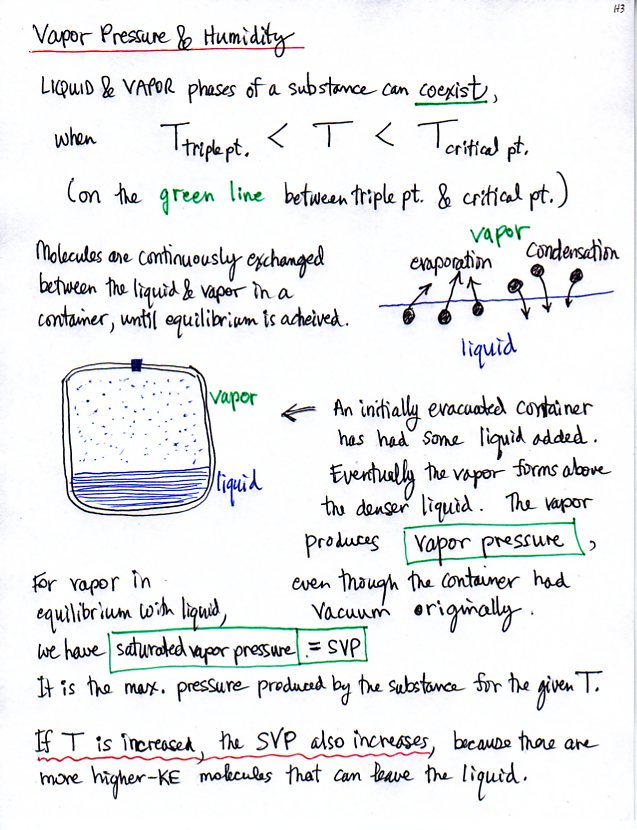 H3
Vapor Pressure & Humidity
LIQUID & VAPOR phases of a substance can coexist,
when T triple pt. < T < T critical pt.
(on the green line between triple pt. & critical pt.)
Molecules are continuously exchanged
between the liquid & vapor in a
container, until equilibrium is acheived.
vapor
evaporation condensation
liquid
vapor
liquid
← An initially evacuated container
has had some liquid added.
Eventually the vapor forms above
the denser liquid. The vapor
produces vapor pressure,
even though the container had
vacuum originally.
For vapor in
equilibrium with liquid,
we have saturated vapor pressure = SVP
It is the max. pressure produced by the substance for the given T.
If T is increased, the SVP also increases, because there are
more higher-KE molecules that can leave the liquid.